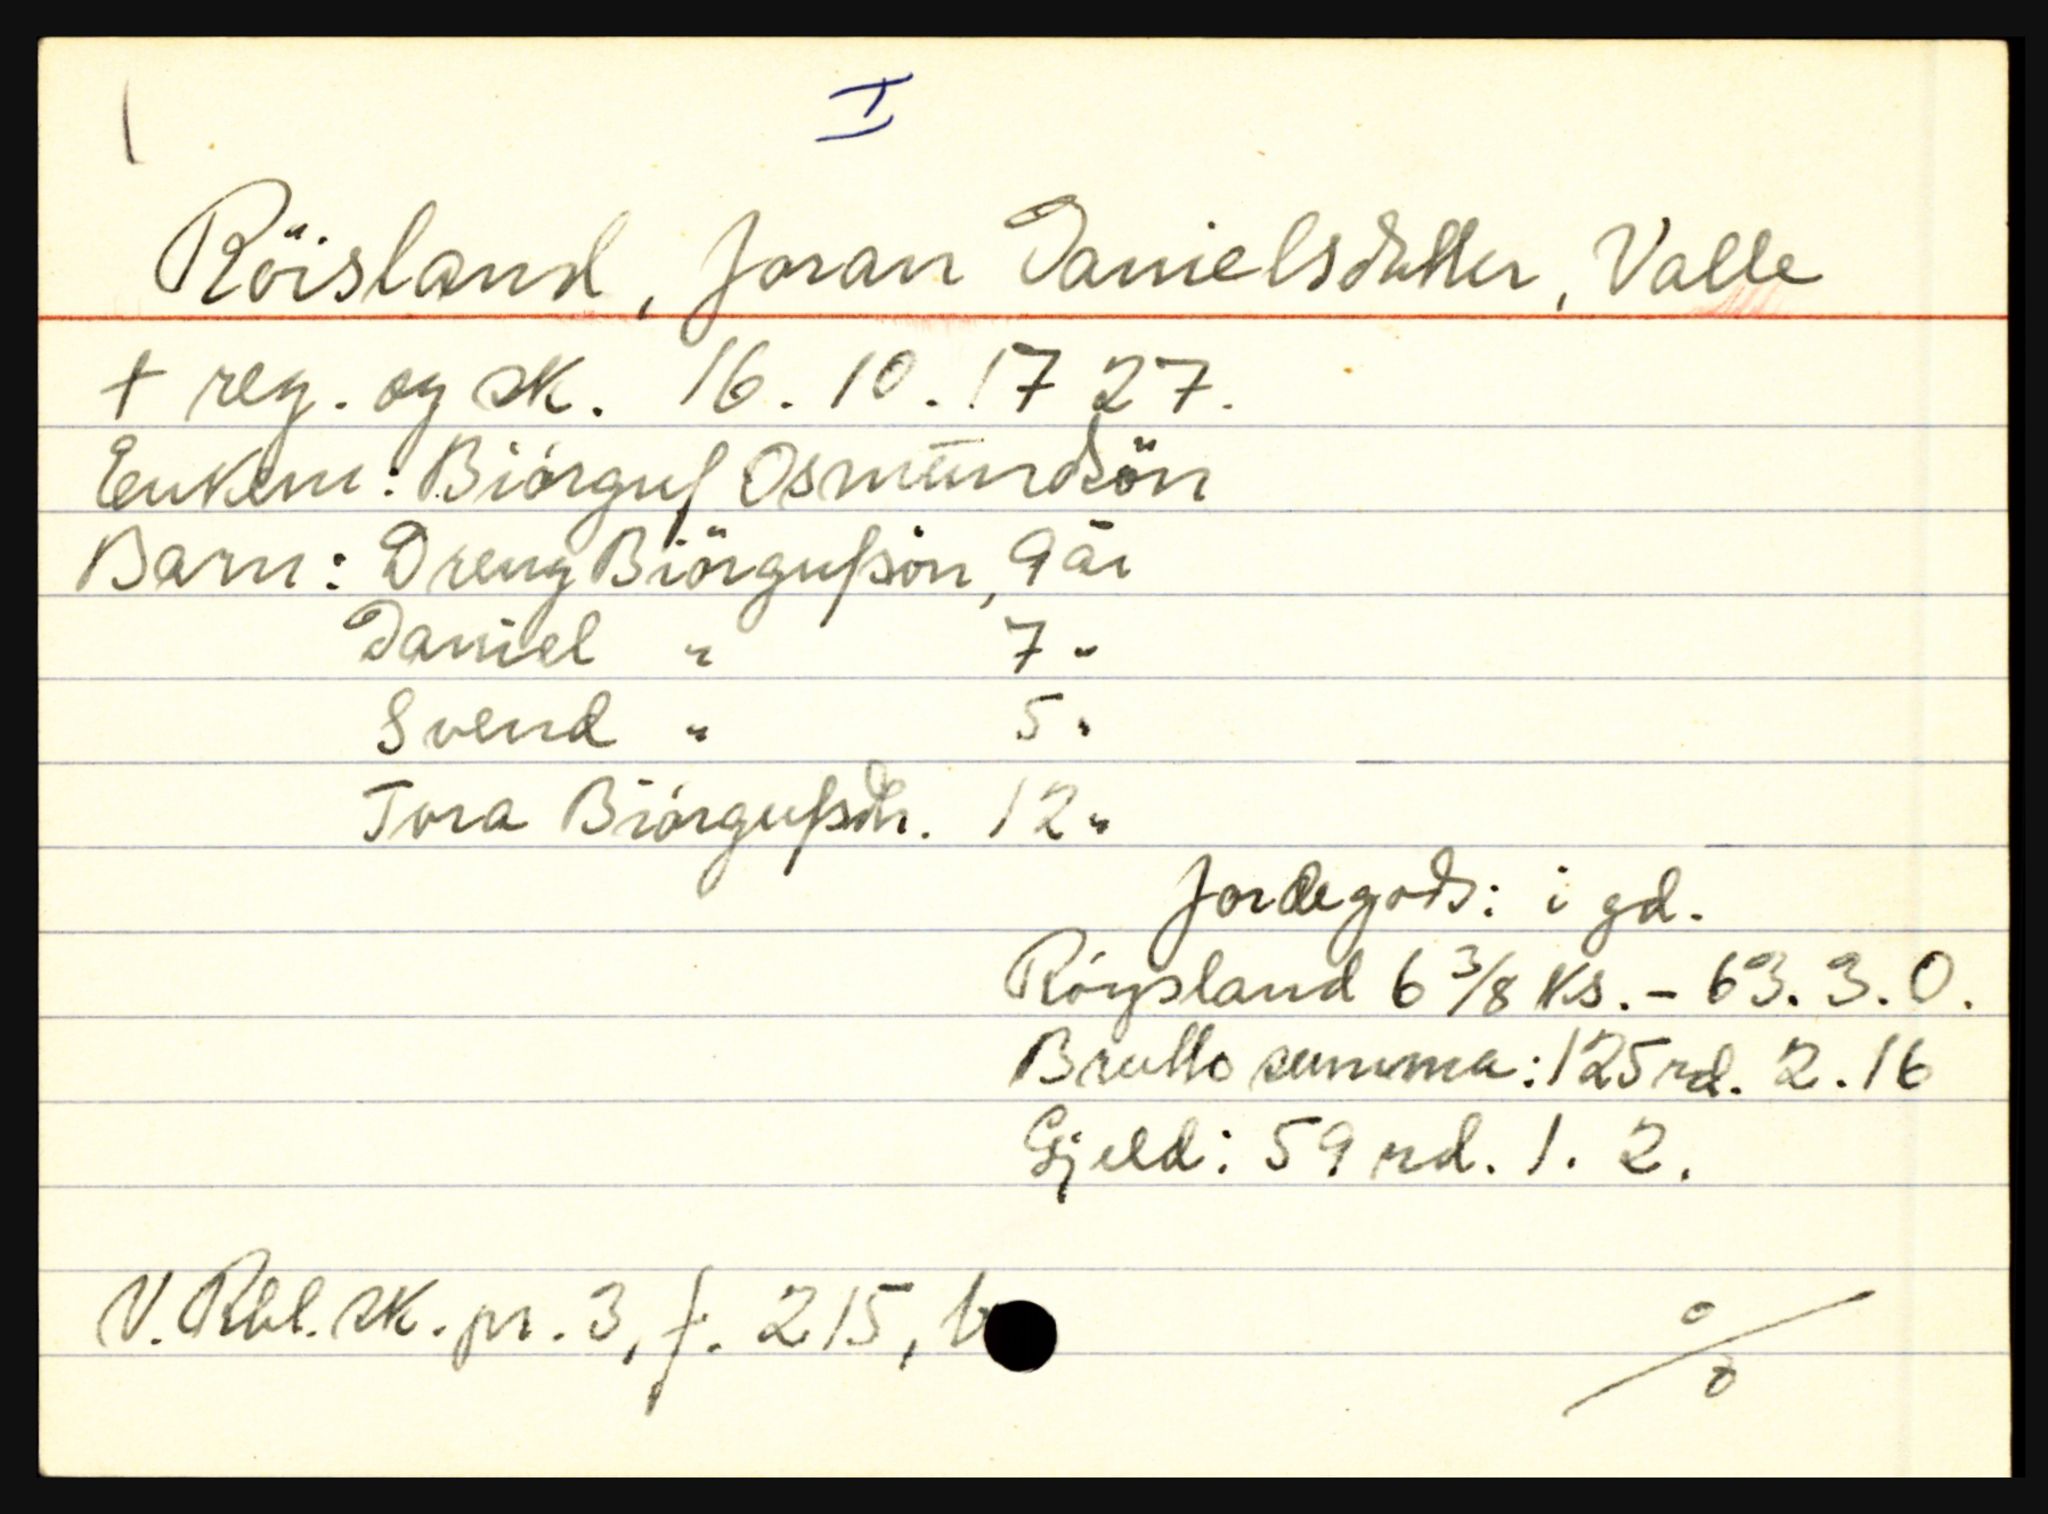 I
Röisland, Joran Danielsdatter, Valle
+ reg. og sk. 16.10.1727.
Enkem: Biörguf Osmundsön
Barn: Dreng Biörgufsön, 9 år
Daniel " 7 "
Svend " 5 "
Tora Biörgufsdtr. 12 "
Jordegods: i gd.
Röysland 6 3/8 ks. - 63.3.0.
Brutto summa: 125 rd. 2.16
Gjeld: 59 rd. 1. 2.
V. Rbl. sk. pr. 3, f. 215, b